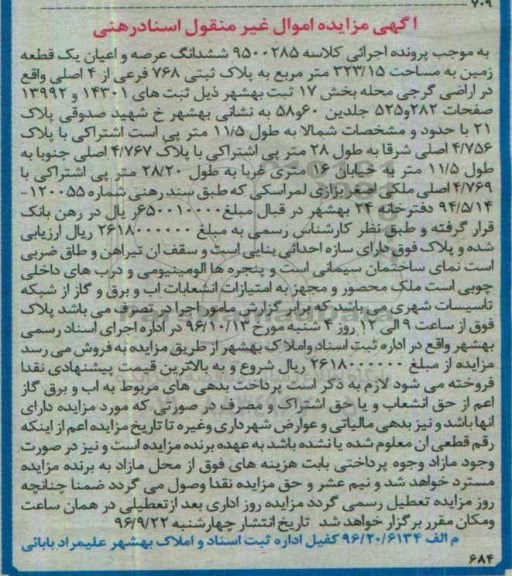 ۷۰۹
آگهی مزایده اموال غیر منقول اسنادرهنی
به موجب پرونده اجرائی کلاسه ۹۵۰۰۲۸۵ ششدانگ عرصه و اعیان یک قطعه
زمین به مساحت ۳۲۳/۱۵ متر مربع به پلاک ثبتی ۷۶۸ فرعی از ۴ اصلی واقع
در اراضی گرجی محله بخش ۱۷ ثبت بهشهر ذیل ثبت های ۱۴۳۰۱ و ۱۳۹۹۲
صفحات ۲۸۲و۵۲۵ جلدین ۶۰و۵۸ به نشانی بهشهر خ شهید صدوقی پلاک
۲۱ با حدود و مشخصات شمالا به طول ۱۱/۵ متر پی است اشتراکی با پلاک
۴/۷۵۶ اصلی شرقا به طول ۲۸ متر پی اشتراکی با پلاک ۴/۷۶۷ اصلی جنوبا به
طول ۱۱/۵ متر به خیابان ۱۶ متری غربا به طول ۲۸/۲۰ متر پی اشتراکی با
۴/۷۶۹ اصلی ملکی اصغر بزازی لمراسکی که طبق سند رهنی شماره ۱۲۰۰۵۵-
۹۴/۵/۱۴ دفترخانه ۲۴ بهشهر در قبال مبلغ ۶۵۰۰۱۰۰۰۰ر یال در رهن بانک
قرار گرفته و طبق نظر کارشناس رسمی به مبلغ ۲۶۱۸۰۰۰۰۰۰ ریال ارزیابی
شده و پلاک فوق دارای سازه احداثی بنایی است و سقف ان تیراهن و طاق ضربی
است نمای ساختمان سیمانی است و پنجره ها الومینیومی و درب های داخلی
چوبی است ملک محصور و مجهز به امتیازات انشعابات اب و برق و گاز از شبکه
تاسیسات شهری می باشد که برابر گزارش مامور اجرا در تصرف می باشد پلاک
فوق از ساعت ۹ الی ۱۲ روز ۴ شنبه مورخ ۹۶/۱۰/۱۳ در اداره اجرای اسناد رسمی
بهشهر واقع در اداره ثبت اسناد واملاک بهشهر از طریق مزایده به فروش می رسد
مزایده از مبلغ ۲۶۱۸۰۰۰۰۰۰ ریال شروع و به بالاترین قیمت پیشنهادی نقدا
فروخته می شود لازم به ذکر است پرداخت بدهی های مربوط به اب و برق گاز
اعم از حق انشعاب و یا حق اشتراک و مصرف در صورتی که مورد مزایده دارای
انها باشد و نیز بدهی مالیاتی و عوارض شهرداری وغیره تا تاریخ مزایده اعم از اینکه
رقم قطعی ان معلوم شده یا نشده باشد به عهده برنده مزایده است و نیز در صورت
وجود مازاد وجوه پرداختی بابت هزینه های فوق از محل مازاد به برنده مزایده
مسترد خواهد شد و نیم عشر و حق مزایده نقدا وصول می گردد ضمنا چنانچه
روز مزایده تعطیل رسمی گردد مزایده روز اداری بعد ازتعطیلی در همان ساعت
ومکان مقرر برگزار خواهد شد تاریخ انتشار چهارشنبه ۹۶/۹/۲۲
م الف ۹۶/۲۰/۶۱۳۴ کفیل اداره ثبت اسناد و املاک بهشهر علیمراد بابائی
۶۸۴